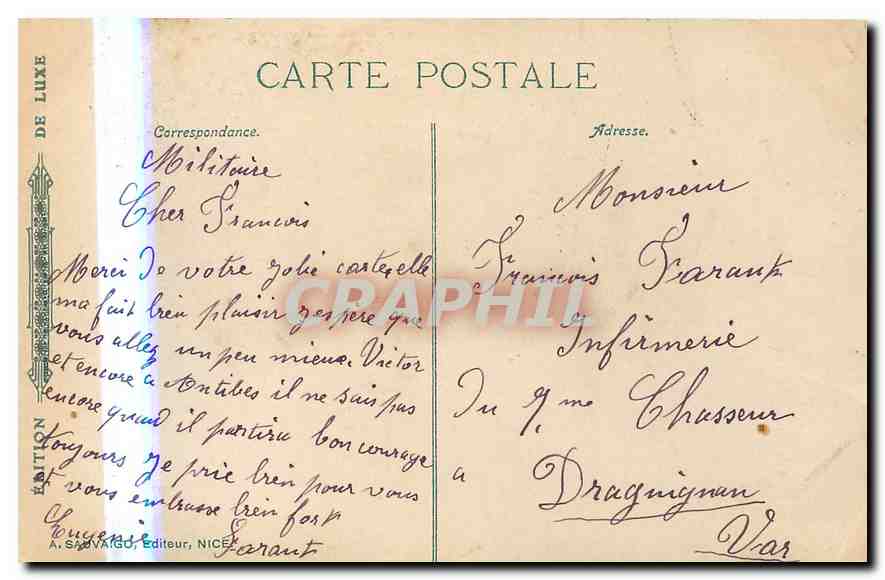 CARTE POSTALE
Correspondance.
Militaire
Cher Francois
Merci De votre jolie carte, elle
ma fait bien plaisir jespère que
vous allez un peu mieux. Victor
et encore a Antibes il ne sais pas
encore quand il partira bon courage
toujours je prie bien pour vous
et vous embrasse bien fort
Eugenie Farant
A. SAUVAIGO, Editeur, NICE
EDITION DE LUXE
Adresse.
Monsieur
Francois Farant
Infirmerie
Du 7me Chasseur
a Draguignan
Var
CRAPHIL